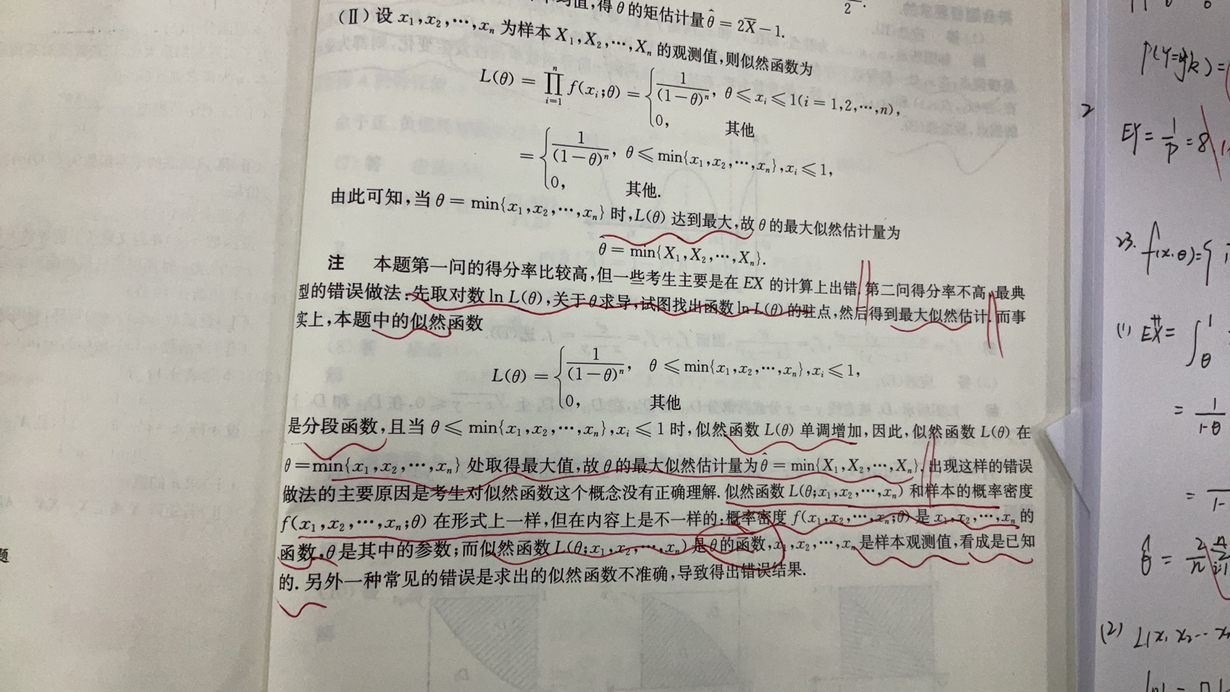 值,得 θ 的矩估计量 θ̂ = 2X̄ − 1.
(Ⅱ) 设 x₁,x₂,⋯,xₙ 为样本 X₁,X₂,⋯,Xₙ 的观测值,则似然函数为
L(θ) = ∏ᵢ₌₁ⁿ f(xᵢ;θ) = { 1/(1−θ)ⁿ, θ ≤ xᵢ ≤ 1(i = 1,2,⋯,n),
0, 其他
= { 1/(1−θ)ⁿ, θ ≤ min{x₁,x₂,⋯,xₙ},xᵢ ≤ 1,
0, 其他.
由此可知,当 θ = min{x₁,x₂,⋯,xₙ} 时,L(θ) 达到最大,故 θ 的最大似然估计量为
θ̂ = min{X₁,X₂,⋯,Xₙ}.
注 本题第一问的得分率比较高,但一些考生主要是在 EX 的计算上出错.第二问得分率不高,最典
型的错误做法:先取对数 ln L(θ),关于 θ 求导,试图找出函数 ln L(θ) 的驻点,然后得到最大似然估计.而事
实上,本题中的似然函数
L(θ) = { 1/(1−θ)ⁿ, θ ≤ min{x₁,x₂,⋯,xₙ},xᵢ ≤ 1,
0, 其他
是分段函数,且当 θ ≤ min{x₁,x₂,⋯,xₙ},xᵢ ≤ 1 时,似然函数 L(θ) 单调增加,因此,似然函数 L(θ) 在
θ = min{x₁,x₂,⋯,xₙ} 处取得最大值,故 θ 的最大似然估计量为 θ̂ = min{X₁,X₂,⋯,Xₙ}.出现这样的错误
做法的主要原因是考生对似然函数这个概念没有正确理解.似然函数 L(θ;x₁,x₂,⋯,xₙ) 和样本的概率密度
f(x₁,x₂,⋯,xₙ;θ) 在形式上一样,但在内容上是不一样的:概率密度 f(x₁,x₂,⋯,xₙ;θ) 是 x₁,x₂,⋯,xₙ 的
函数,θ 是其中的参数;而似然函数 L(θ;x₁,x₂,⋯,xₙ) 是 θ 的函数,x₁,x₂,⋯,xₙ 是样本观测值,看成是已知
的.另外一种常见的错误是求出的似然函数不准确,导致得出错误结果.
题
2
P(Y=yk)=
EY = 1/p = 8
23. f(x·θ)={
(1) EX = ∫θ 1
= 1/1-θ
=
θ̂ = 2/n
(2) L(x₁ x₂⋯